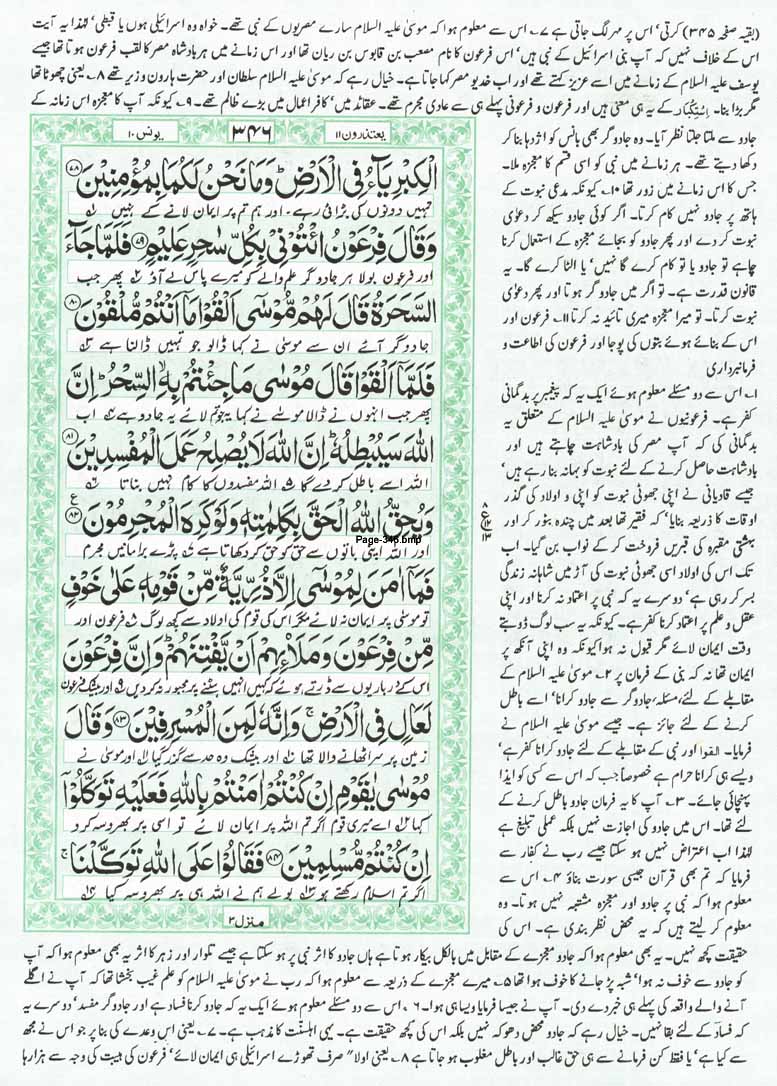 (بقیہ صفحہ ۳۴۵) کرتی، اس پر مہر لگ جاتی ہے ۷۔ اس سے معلوم ہوا کہ موسیٰ علیہ السلام سارے مصریوں کے نبی تھے۔ خواہ وہ اسرائیلی ہوں یا قبطی، لہٰذا یہ آیت
اس کے خلاف نہیں کہ آپ بنی اسرائیل کے نبی ہیں، اس فرعون کا نام مصعب بن قابوس بن ریان تھا اور اس زمانے میں ہر بادشاہ مصر کا لقب فرعون ہوتا تھا جیسے
یوسف علیہ السلام کے زمانے میں اسے عزیز کہتے تھے اور اب خدیو مصر کہا جاتا ہے۔ خیال رہے کہ موسیٰ علیہ السلام سلطان اور حضرت ہارون وزیر تھے ۸۔ یعنی چھوٹا تھا
مگر بڑا بنا۔ اِسْتِكْبَار کے یہ ہی معنی ہیں اور فرعون و فرعونی پہلے ہی سے عادی مجرم تھے۔ عقائد میں، کافر اعمال میں بڑے ظالم تھے۔ ۹۔ کیونکہ آپ کا معجزہ اس زمانہ کے
جادو سے ملتا جلتا نظر آیا۔ وہ جادوگر بھی بانس کو اژدہا بنا کر
دکھا دیتے تھے۔ ہر زمانے میں نبی کو اسی قسم کا معجزہ ملا۔
جس کا اس زمانے میں زور تھا ۱۰۔ کیونکہ مدعی نبوت کے
ہاتھ پر جادو نہیں کام کرتا۔ اگر کوئی جادو سیکھ کر دعوٰی
نبوت کر دے اور پھر جادو کو بجائے معجزہ کے استعمال کرنا
چاہے تو جادو یا تو کام کرے گا نہیں، یا الٹا کرے گا۔ یہ
قانون قدرت ہے۔ تو اگر میں جادوگر ہوتا اور پھر دعوٰی
نبوت کرتا۔ تو میرا معجزہ میری تائید نہ کرتا ۱۱۔ فرعون اور
اس کے بنائے ہوئے بتوں کی پوجا اور فرعون کی اطاعت و
فرمانبرداری
۱۔ اس سے دو مسئلے معلوم ہوئے ایک یہ کہ پیغمبر پر بدگمانی
کفر ہے۔ فرعونیوں نے موسیٰ علیہ السلام کے متعلق یہ
بدگمانی کی کہ آپ مصر کی بادشاہت چاہتے ہیں اور
بادشاہت حاصل کرنے کے لئے نبوت کو بہانہ بنا رہے ہیں،
جیسے قادیانی نے اپنی جھوٹی نبوت کو اپنی و اولاد کی گذر
اوقات کا ذریعہ بنایا، کہ فقیر تھا بعد میں چندہ بٹور کر اور
بہشتی مقبرہ کی قبریں فروخت کر کے نواب بن گیا۔ اب
تک اس کی اولاد اسی جھوٹی نبوت کی آڑ میں شاہانہ زندگی
بسر کر رہی ہے، دوسرے یہ کہ نبی پر اعتماد نہ کرنا اور اپنی
عقل و علم پر اعتماد کرنا کفر ہے۔ کیونکہ یہ سب لوگ ڈوبتے
وقت ایمان لائے مگر قبول نہ ہوا کیونکہ وہ اپنی آنکھ پر
ایمان تھا نہ کہ نبی کے فرمان پر ۲۔ موسیٰ علیہ السلام کے
مقابلے کے لئے، مسئلہ، جادوگر سے جادو کرانا، اسے باطل
کرنے کے لئے جائز ہے۔ جیسے موسیٰ علیہ السلام نے
فرمایا۔ القوا اور نبی کے مقابلے کے لئے جادو کرانا کفر ہے،
ویسے ہی کرانا حرام ہے خصوصاً جب کہ اس سے کسی کو ایذا
پہنچائی جائے۔ ۳۔ آپ کا یہ فرمان جادو باطل کرنے کے
لئے تھا۔ اس میں جادو کی اجازت نہیں بلکہ عملی تبلیغ ہے
لہٰذا اب اعتراض نہیں ہو سکتا جیسے رب نے کفار سے
فرمایا کہ تم بھی قرآن جیسی سورت بناؤ ۴۔ اس سے
معلوم ہوا کہ نبی پر جادو اور معجزہ مشتبہ نہیں ہوتا۔ وہ
معلوم کر لیتے ہیں کہ یہ محض نظر بندی ہے۔ اس کی
حقیقت کچھ نہیں۔ یہ بھی معلوم ہوا کہ جادو معجزے کے مقابل میں بالکل بیکار ہوتا ہے ہاں جادو کا اثر نبی پر ہو سکتا ہے جیسے تلوار اور زہر کا اثر یہ بھی معلوم ہوا کہ آپ
کو جادو سے خوف نہ ہوا، شبہ پڑ جانے کا خوف ہوا تھا ۵۔ میرے معجزے کے ذریعہ سے معلوم ہوا کہ رب نے موسیٰ علیہ السلام کو علم غیب بخشا تھا کہ آپ نے اگلے
آنے والے واقعہ کی پہلے ہی خبر دے دی۔ آپ نے جیسا فرمایا ویسا ہی ہوا۔ ۶، اس سے دو مسئلے معلوم ہوئے ایک یہ کہ جادو کرنا فساد ہے اور جادوگر مفسد، دوسرے یہ
کہ فساد کے لئے بقا نہیں۔ خیال رہے کہ جادو محض دھوکہ نہیں بلکہ اس کی کچھ حقیقت ہے۔ یہی اہلسنّت کا مذہب ہے۔ ۷۔ یعنی اس وعدے کی بنا پر جو اس نے مجھ
سے کیا ہے، یا فقط کن فرمانے سے ہی حق غالب اور باطل مغلوب ہو جاتا ہے ۸۔ یعنی اولا" صرف تھوڑے اسرائیلی ہی ایمان لائے، فرعون کی ہیبت کی وجہ سے ہزارہا
یعتذرون ۱۱
۳۴۶
یونس ۱۰
الْكِبْرِيَآءُ فِى الْاَرْضِ ؕ وَمَا نَحْنُ لَكُمَا بِمُؤْمِنِيْنَ ﴿۷۸﴾
تمہیں دونوں کی بڑائی رہے اور ہم تم پر ایمان لانے کے نہیں
وَقَالَ فِرْعَوْنُ ائْتُوْنِىْ بِكُلِّ سٰحِرٍ عَلِيْمٍ ﴿۷۹﴾ فَلَمَّا جَآءَ
اور فرعون بولا ہر جادوگر علم والے کو میرے پاس لے آؤ پھر جب
السَّحَرَةُ قَالَ لَهُمْ مُّوْسٰٓى اَلْقُوْا مَاۤ اَنْتُمْ مُّلْقُوْنَ ﴿۸۰﴾
جادوگر آئے ان سے موسیٰ نے کہا ڈالو جو تمہیں ڈالنا ہے
فَلَمَّاۤ اَلْقَوْا قَالَ مُوْسٰى مَا جِئْتُمْ بِهِ ۙ السِّحْرُ ؕ اِنَّ
پھر جب انہوں نے ڈالا موسیٰ نے کہا یہ جو تم لائے یہ جادو ہے اب
اللّٰهَ سَيُبْطِلُهٗ ؕ اِنَّ اللّٰهَ لَا يُصْلِحُ عَمَلَ الْمُفْسِدِيْنَ ﴿۸۱﴾
اللہ اسے باطل کر دے گا اللہ مفسدوں کا کام نہیں بناتا
وَيُحِقُّ اللّٰهُ الْحَقَّ بِكَلِمٰتِهٖ وَلَوْ كَرِهَ الْمُجْرِمُوْنَ ﴿۸۲﴾
اور اللہ اپنی باتوں سے حق کو حق کر دکھاتا ہے پڑے برا مانیں مجرم
Page-346.bmp
فَمَاۤ اٰمَنَ لِمُوْسٰٓى اِلَّا ذُرِّيَّةٌ مِّنْ قَوْمِهٖ عَلٰى خَوْفٍ
تو موسیٰ پر ایمان نہ لائے مگر اس کی قوم کی اولاد سے کچھ لوگ فرعون اور
مِّنْ فِرْعَوْنَ وَمَلَاۡئِهِمْ اَنْ يَّفْتِنَهُمْ ؕ وَاِنَّ فِرْعَوْنَ
اس کے درباریوں سے ڈرتے ہوئے کہ کہیں انہیں ہٹنے پر مجبور نہ کر دیں ۹ اور بیشک فرعون
لَعَالٍ فِى الْاَرْضِ ۚ وَاِنَّهٗ لَمِنَ الْمُسْرِفِيْنَ ﴿۸۳﴾ وَقَالَ
زمین پر سر اٹھانے والا تھا اور بیشک وہ حد سے گزر گیا اور موسیٰ نے
مُوْسٰى يٰقَوْمِ اِنْ كُنْتُمْ اٰمَنْتُمْ بِاللّٰهِ فَعَلَيْهِ تَوَكَّلُوْۤا
کہا اے میری قوم اگر تم اللہ پر ایمان لائے تو اسی پر بھروسہ کرو
اِنْ كُنْتُمْ مُّسْلِمِيْنَ ﴿۸۴﴾ فَقَالُوْا عَلَى اللّٰهِ تَوَكَّلْنَا ۚ
اگر تم اسلام رکھتے ہو بولے ہم نے اللہ ہی پر بھروسہ کیا
منزل ۳